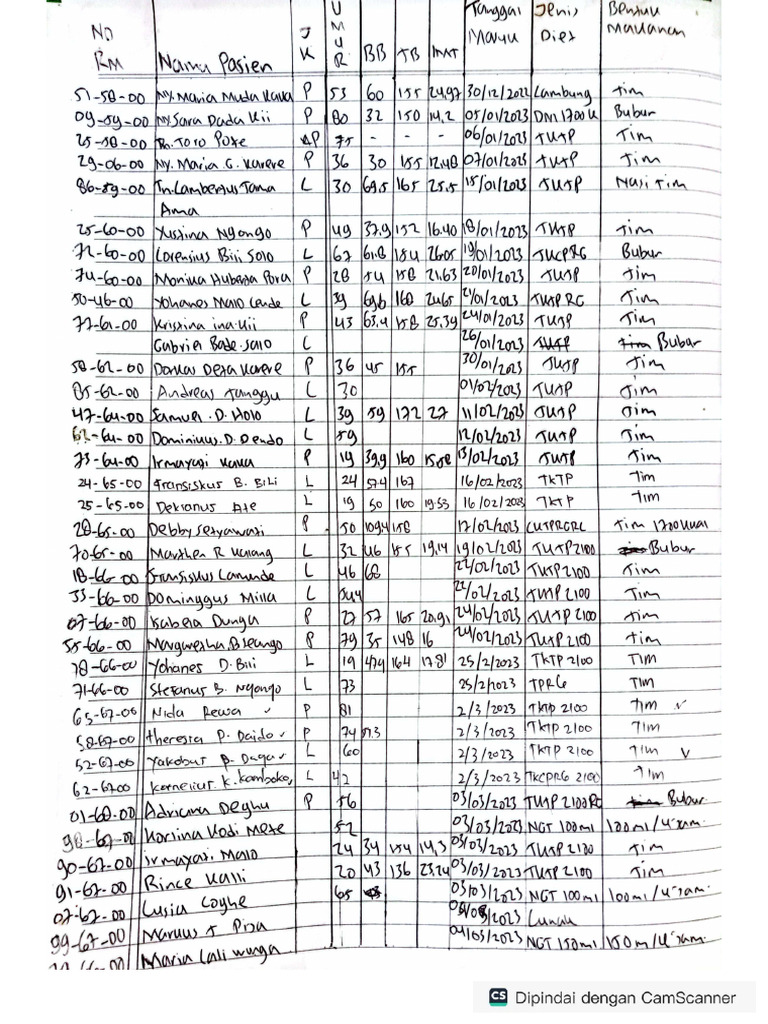 NO RM Nama Pasien JK UMUR BB TB IMT Tanggal Masuk Jenis Diet Bentuk Makanan
51-58-00 Ny. Maria Muda Kaka P 53 60 155 24,97 30/12/2022 Lambung Tim
09-59-00 Ny Sara Dada Kii P 80 32 150 14,2 05/01/2023 DM 1700 K Bubur
25-58-00 Tn. Toro Pote P 75 - - - 06/01/2023 TKTP Tim
29-06-00 Ny. Maria G. Karere P 36 30 155 12,48 07/01/2023 TKTP Tim
86-59-00 Tn. Lambertus Tama L 30 69,5 165 25,5 15/01/2023 TKTP Nasi Tim
Ama
25-60-00 Yustina Ngongo P 49 37,9 152 16.40 18/01/2023 TKTP Tim
72-60-00 Lorensius Bili Solo L 67 61.8 154 26.05 19/01/2023 TKCPRG Bubur
74-60-00 Monika Huberta Pora P 28 54 158 21,63 20/01/2023 TKTP Tim
50-46-00 Yohanes Malo Lende L 39 160 21/01/2023 TKTP RG Tim
77-61-00 Kristina ina Kii P 43 63.4 158 25,39 24/01/2023 TKTP Tim
Gabriel Bade Salo L 26/01/2023 TKTP Tim Bubar
58-62-00 Dorkas Deta Karere P 36 45 155 30/01/2023 TKTP Tim
85-62-00 Andreas Tanggu L 30 01/02/2023 TKTP Tim
47-64-00 Samuel . D. Holo L 39 59 172 27 11/02/2023 TKTP Tim
62-64-00 Dominikus. D. Dendo L 59 12/02/2023 TKTP Tim
73-64-00 Irmayati Kaka P 19 39,9 160 13/02/2023 TKTP Tim
24-65-00 Fransiskus B. Bili L 24 57.4 167 16/02/2023 TKTP Tim
25-65-00 Dekianus Ate L 19 50 160 19.53 16/02/2023 TKTP Tim
28-65-00 Debby Setyawati P 50 109,4 158 17/02/2023 Tim 1700 kkal
70-65-00 Marthen R Karang L 32 46 155 19,14 19/02/2023 TKTP 2100 Tim Bubar
18-66-00 Fransiskus L 46 68 22/02/2023 TKTP 2100 Tim
33-66-00 Dominggus Milla L 22/02/2023 TKTP 2100 Tim
07-66-00 Isabela Dunga P 27 57 165 20.91 24/02/2023 TKTP 2100 Tim
55-66-00 Margaretha P 79 35 148 16 24/02/2023 TKTP 2100 Tim
78-66-00 Yohanes D. Bili L 19 47,9 164 17.81 25/2/2023 TKTP 2100 TIM
71-66-00 Stefanus B. Ngongo L 73 25/2/2023 TPRG TIM
65-67-00 Nida Rewa ✓ P 81 2/3/2023 TKTP 2100 TIM ✓
58-67-00 Theresia P. Daido ✓ P 74 2/3/2023 TKTP 2100 TIM
52-67-00 Yakobus P. Daga ✓ L 60 2/3/2023 TKTP 2100 TIM ✓
62-67-00 Kornelius K. Komboko, L 42 2/3/2023 TKCPRG 2100 TIM
01-68-00 Adriana Deghu P 56 03/03/2023 TKTP 2100 RG Tim Bubur
98-67-00 Karlina Kodi Mete 52 03/03/2023 NGT 100ml 100ml/4 jam.
90-67-00 Irmayati Malo 24 34 154 14,3 03/03/2023 TKTP 2100 Tim
91-67-00 Rince Kalli 20 43 136 23,24 03/03/2023 TKTP 2100 Tim
07-67-00 Lusia Coghe 65 03/03/2023 NGT 100ml 100ml/4 jam.
99-67-00 Markus T Pisa 2023 Lunak
66-00 Maria Lali Wunga 04/03/2023 NGT 150ml 150 m/4 jam.
CS Dipindai dengan CamScanner